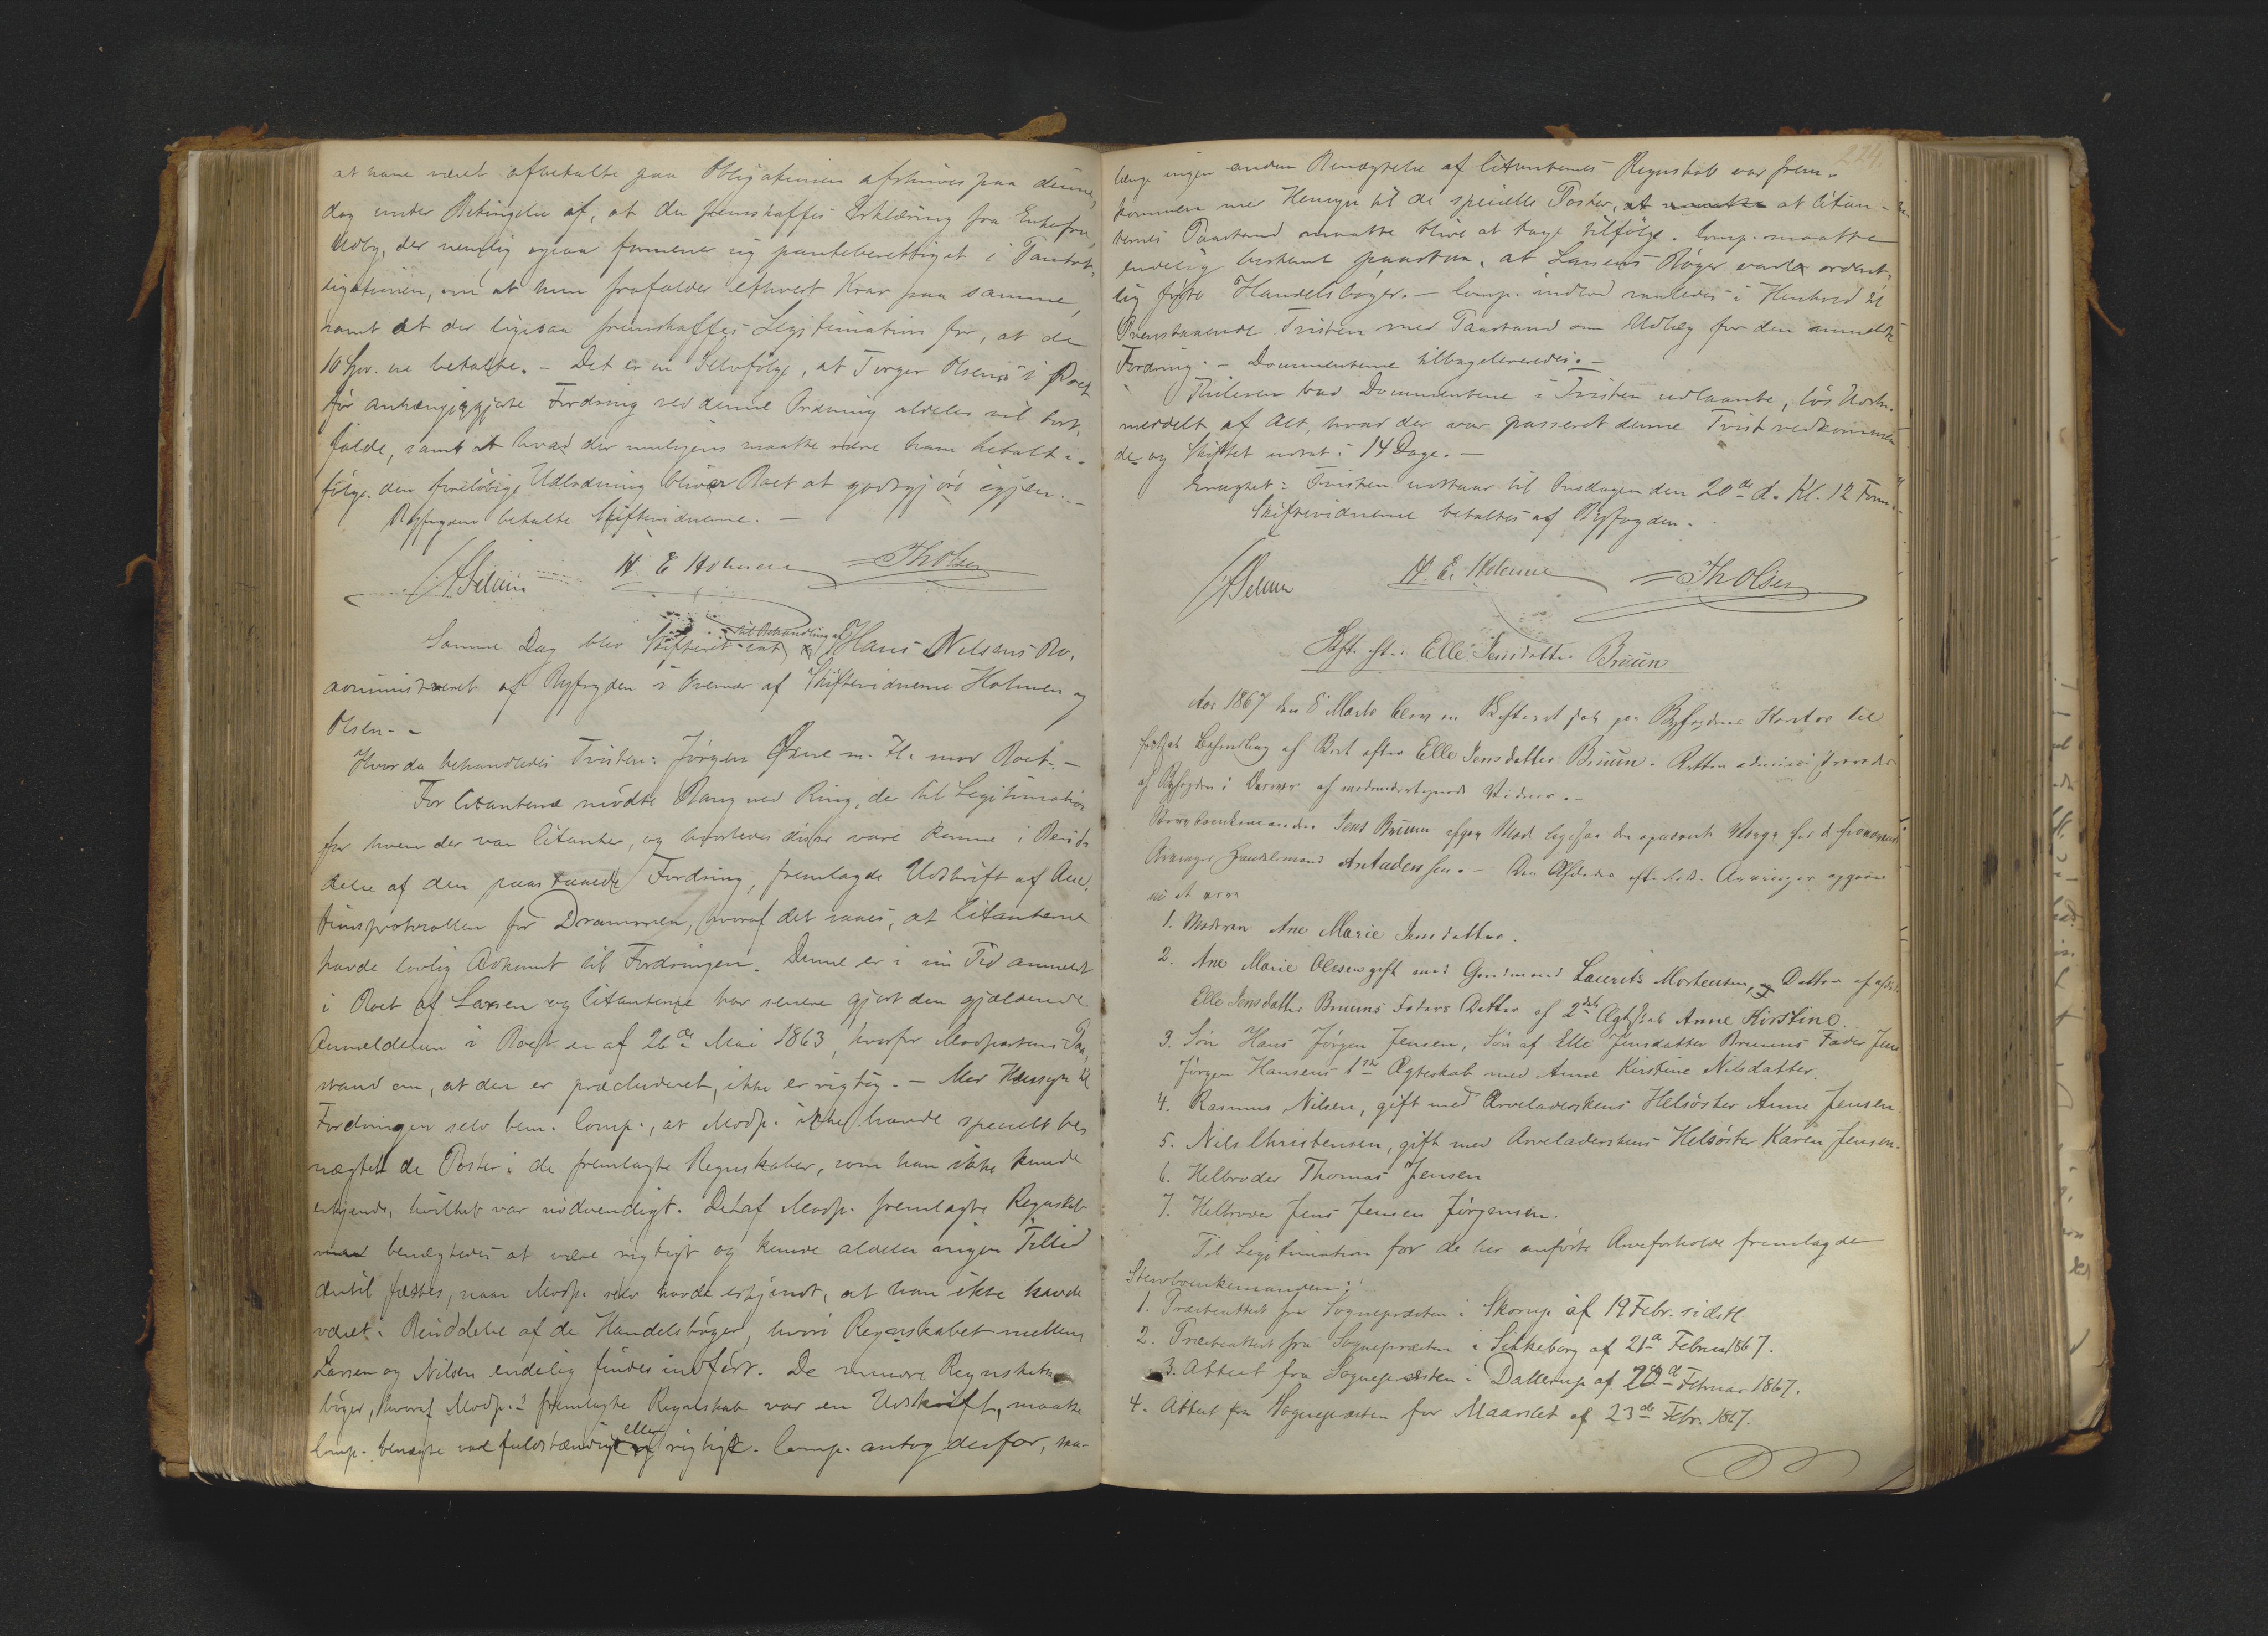 at have været afbetalte paa Obligationen afskrives paa denne,
dog under Betingelse af, at der fremskaffes Erklæring fra Enkefru
Udby, der nemlig ogsaa formener sig panteberettiget i Pantob-
ligationen, om at hun frafalder ethvert Krav paa samme,
samt at der ligesaa fremskaffes Legitimation for, at de
10 Spd. ere betalte. – Det er en Selvfølge, at Torger Olsens i Boet
før anhængiggjorte Fordring ved denne Ordning aldeles vil bort-
falde, samt at hvad der muligens maatte være ham betalt i-
følge den foreløbige Udlodning bliver Boet at godtgjøre igjen. –
Byfogden betalte Skiftevidnerne. –
H. E. Holmen Th Olsen
Samme Dag blev Skifteret sat til Behandling af Hans Nilsens Bo,
administreret af Byfogden i Overvær af Skiftevidnerne Holmen og
Olsen. –
Hvorda behandledes Tvisten: Jørgen m. Fl. mod Boet. –
For Citanterne mødte Bang ved Ring, der til Legitimation
for hvem der var Citanter, og hvorledes disse vare komne i Besid-
delse af den paastaaede Fordring, fremlagde Udskrift af Auc-
tionsprotocollen for Drammen, hvoraf det saaes, at Citanterne
havde lovlig Adkomst til Fordringen. Denne er i sin Tid anmeldt
i Boet af Larsen og Citanterne har senere gjort den gjældende.
Anmeldelsen i Boet er af 26de Mai 1863, hvorfor Modpartens Paa-
stand om, at den er præcluderet, ikke er rigtig. – Med Hensyn til
Fordringen selv bem. Comp., at Modp. ikke havde specielt be-
nægtet de Poster i de fremlagte Regnskaber, som han ikke kunde
erkjende, hvilket var nødvendigt. Det af Modp. fremlagte Regnskab
benægtedes at være rigtigt og kunde aldeles ingen Tillid
dertil fæstes, naar Modp. selv havde erkjendt, at han ikke havde
været i Besiddelse af de Handelsbøger, hvori Regnskabet mellem
Larsen og Nilsen endelig findes indført. De mindre Regnskabs-
bøger, hvoraf Modp.s fremlagte Regnskab var en Udskrift, maatte
Comp. benægte var fuldstændige eller rigtige. Comp. antog derfor, saa-
224.
længe ingen anden Benægtelse af Citanternes Regnskab var frem-
kommen med Hensyn til de specielle Poster, at Citan-
ternes Paastand maatte blive at tage tilfølge. Comp. maatte
endelig bestemt paastaa, at Larsens Bøger vare ordent-
lig førte Handelsbøger. – Comp. indlod saaledes i Henhold til
Ovenstaaende Tvisten med Paastand om Udlæg for den anmeldte
Fordring. – Documenterne tilbageleveredes. –
bad Documenterne i Tvisten udlaante, løs Udskr.
meddelt af Alt, hvad der var passeret denne Tvist vedkommen-
de og Skiftet udsat i 14 Dage. –
Eragtet: Tvisten udstaar til Onsdagen den 20de d. Kl. 12 Form. –
Skiftevidnerne betaltes af Byfogden. –
H. E. Holmen Th Olsen
Skft. eft. Elle Jensdatter Bruun
Aar 1867 den 8 Marts blev en Skifteret sat paa Byfogdens Kontor til
fortsat Behandling af Boet efter Elle Jensdatter Bruun. Retten administreredes
af Byfogden i Overvær af medundertegnede Vidner. –
Stervboenkemanden Jens Bruun mød ligesaa den Værge for d fraværende
Arvinger Handelsmand Audensen. – Den Afdødes efterladte Arvinger opgaves
nu at være
1. Moderen Ane Marie Jensdatter.
2. Ane Marie Olesen gift med Gaardmand Laurits Mortensen, Datter af afdøde
Elle Jensdatter Bruuns Faders Datter af 2det Ægteskab Anne Kirstine.
3. Søn Hans Jørgen Jensen, Søn af Elle Jensdatter Bruuns Fader Jens
Jørgen Hansens 1ste Ægteskab med Anne Kirstine Nilsdatter.
4. Rasmus Nilsen, gift med Arveladerskens Helsøster Anne Jensen.
5. Nils Christensen, gift med Arveladerskens Helsøster Karen Jensen.
6. Helbroder Thomas Jensen
7. Helbroder Jens Jensen Jørgensen.
Til Legitimation for de her anførte Arveforholde fremlagde
Stervboenkemanden:
1. Præsteattest fra Sognepræsten i Skorup af 19 Febr. sidstl.
2. Præsteattest fra Sognepræsten i Silkeborg af 21de Februar 1867.
3. Attest fra Sognepræsten i Dallerup af Februar 1867.
4. Attest fra Sognepræsten for Maarslet af 23de Febr. 1867.